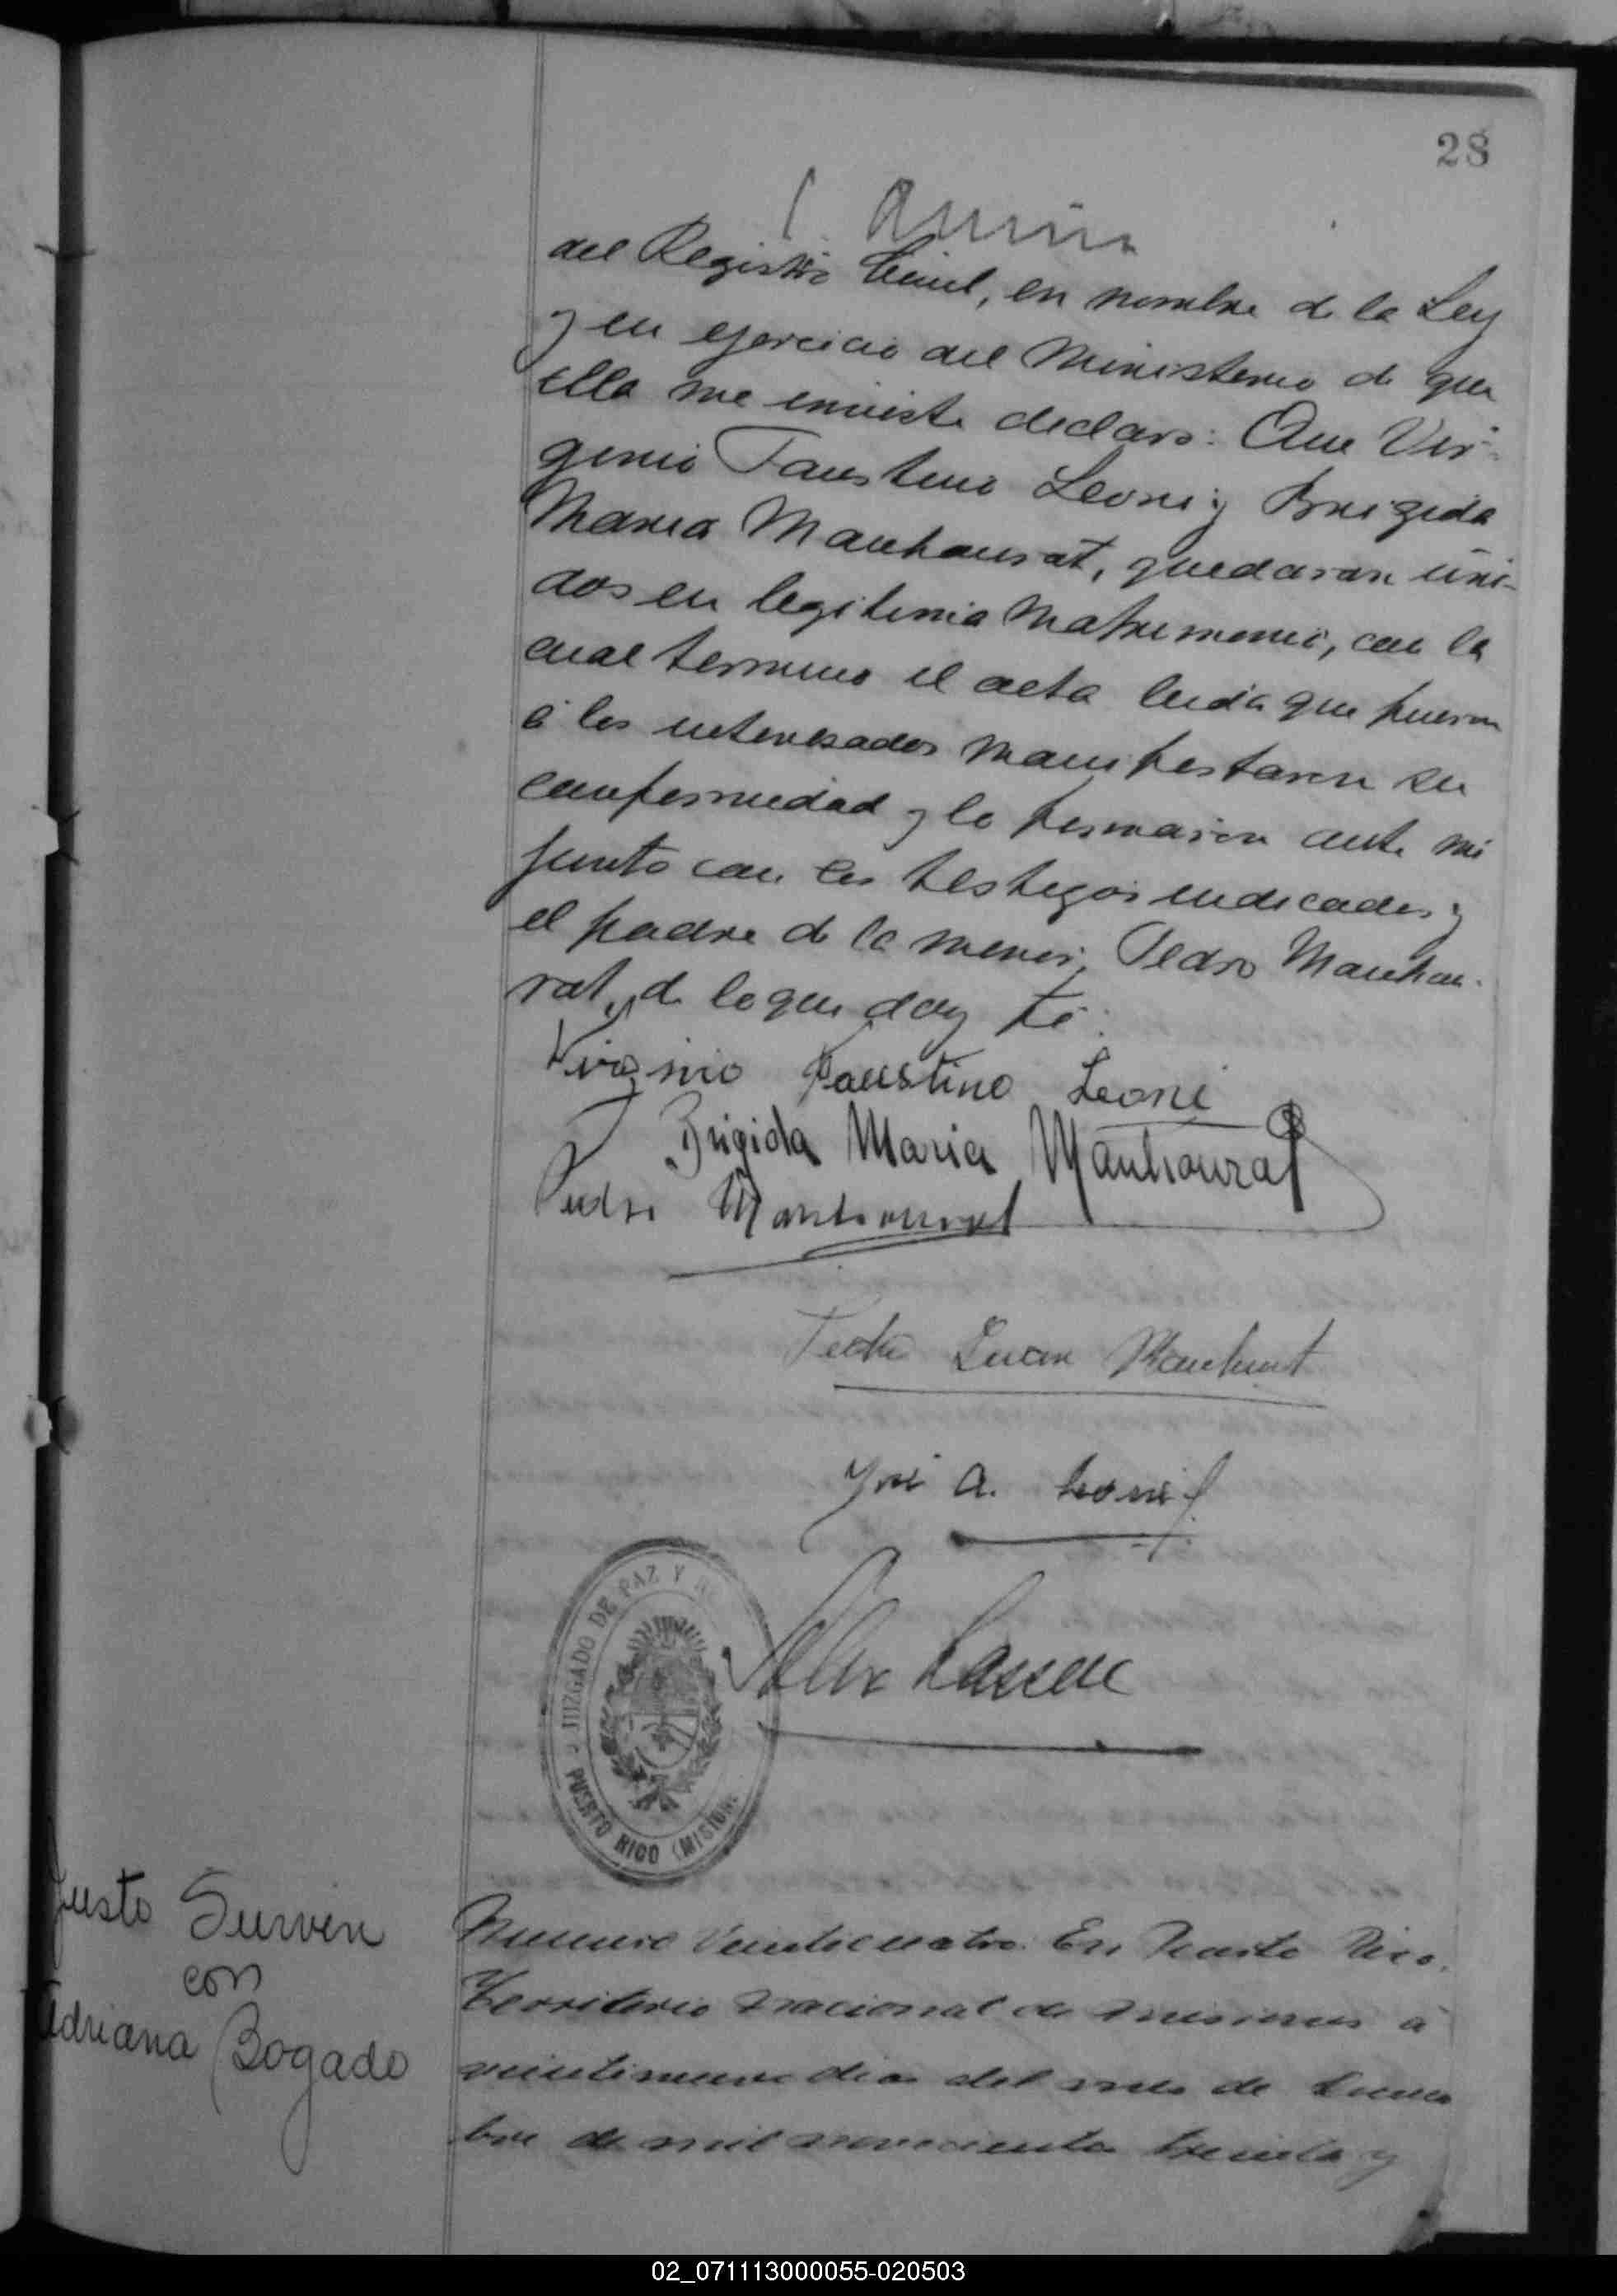 28
del Registro Civil, en nombre de la Ley
y en ejercicio del Ministerio de que
ella me inviste declaro: Que Vir-
genio Faustino Leoni y Brigida
Maria Manhaurat, quedaran uni-
dos en legitimo Matrimonio, con la
cual termino el acta leida que fuera
á los interesados manifestaron su
conformidad y lo firmaron ante mi
junto con los testigos indicados y
el padre de la menor, Pedro Manhau-
rat, de lo que doy fé.
Virginio Faustino Leoni
Brigida Maria Manhaurat
Pedro Manhaurat
Juan
José A. Leoni
JUZGADO DE PAZ Y
PUERTO RICO (MISIONES
Justo Survin
con
Adriana Bogado
Numero Veinticuatro. En Puerto Rico.
Territorio Nacional de Misiones á
veintinueve dias del mes de Diciem
bre de mil novecientos treinta y
02_071113000055-020503